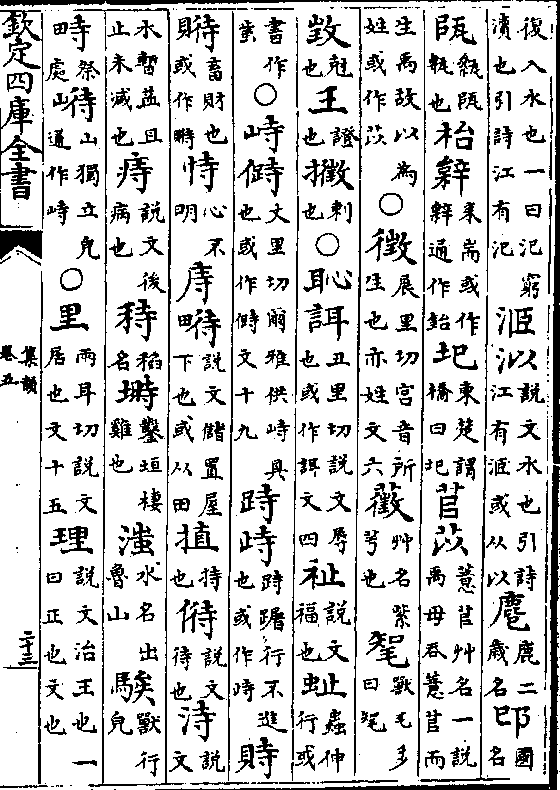 復入水也一曰汜窮瀆也引詩江有汜○洍㳄說文水也引詩江有洍或从以麀鹿二歲名㠱國名
瓺㼰瓺也枱辝耒耑或作辝通作鈶圯東楚謂橋曰圯苢苡薏苢艸名一說禹母吞薏苢而
生禹故以為姓或作苡○徵展里切宮音所生也亦姓文六艸名紫芎也獸毛多曰
尅也王證也刺也○恥誀丑里切說文辱也或作誀文四祉說文福也蚩蟲伸行或
書作蚩○峙偫丈里切爾雅供峙具也或作偫文十九跱峙跱躇行不進也或作峙
畜財也或作恃心不明庤畤說文儲置屋下也或从田持也偫說文待也洔說文
水暫益且止未減也痔說文後病也秲稻名塒鑿垣棲雞也滍水名出魯山騃獸行皃
畤祭田處峙山獨立皃通作峙○里兩耳切說文居也文十五理說文治玉也一曰正也文也
欽定四庫全書 集韻卷五 二十三